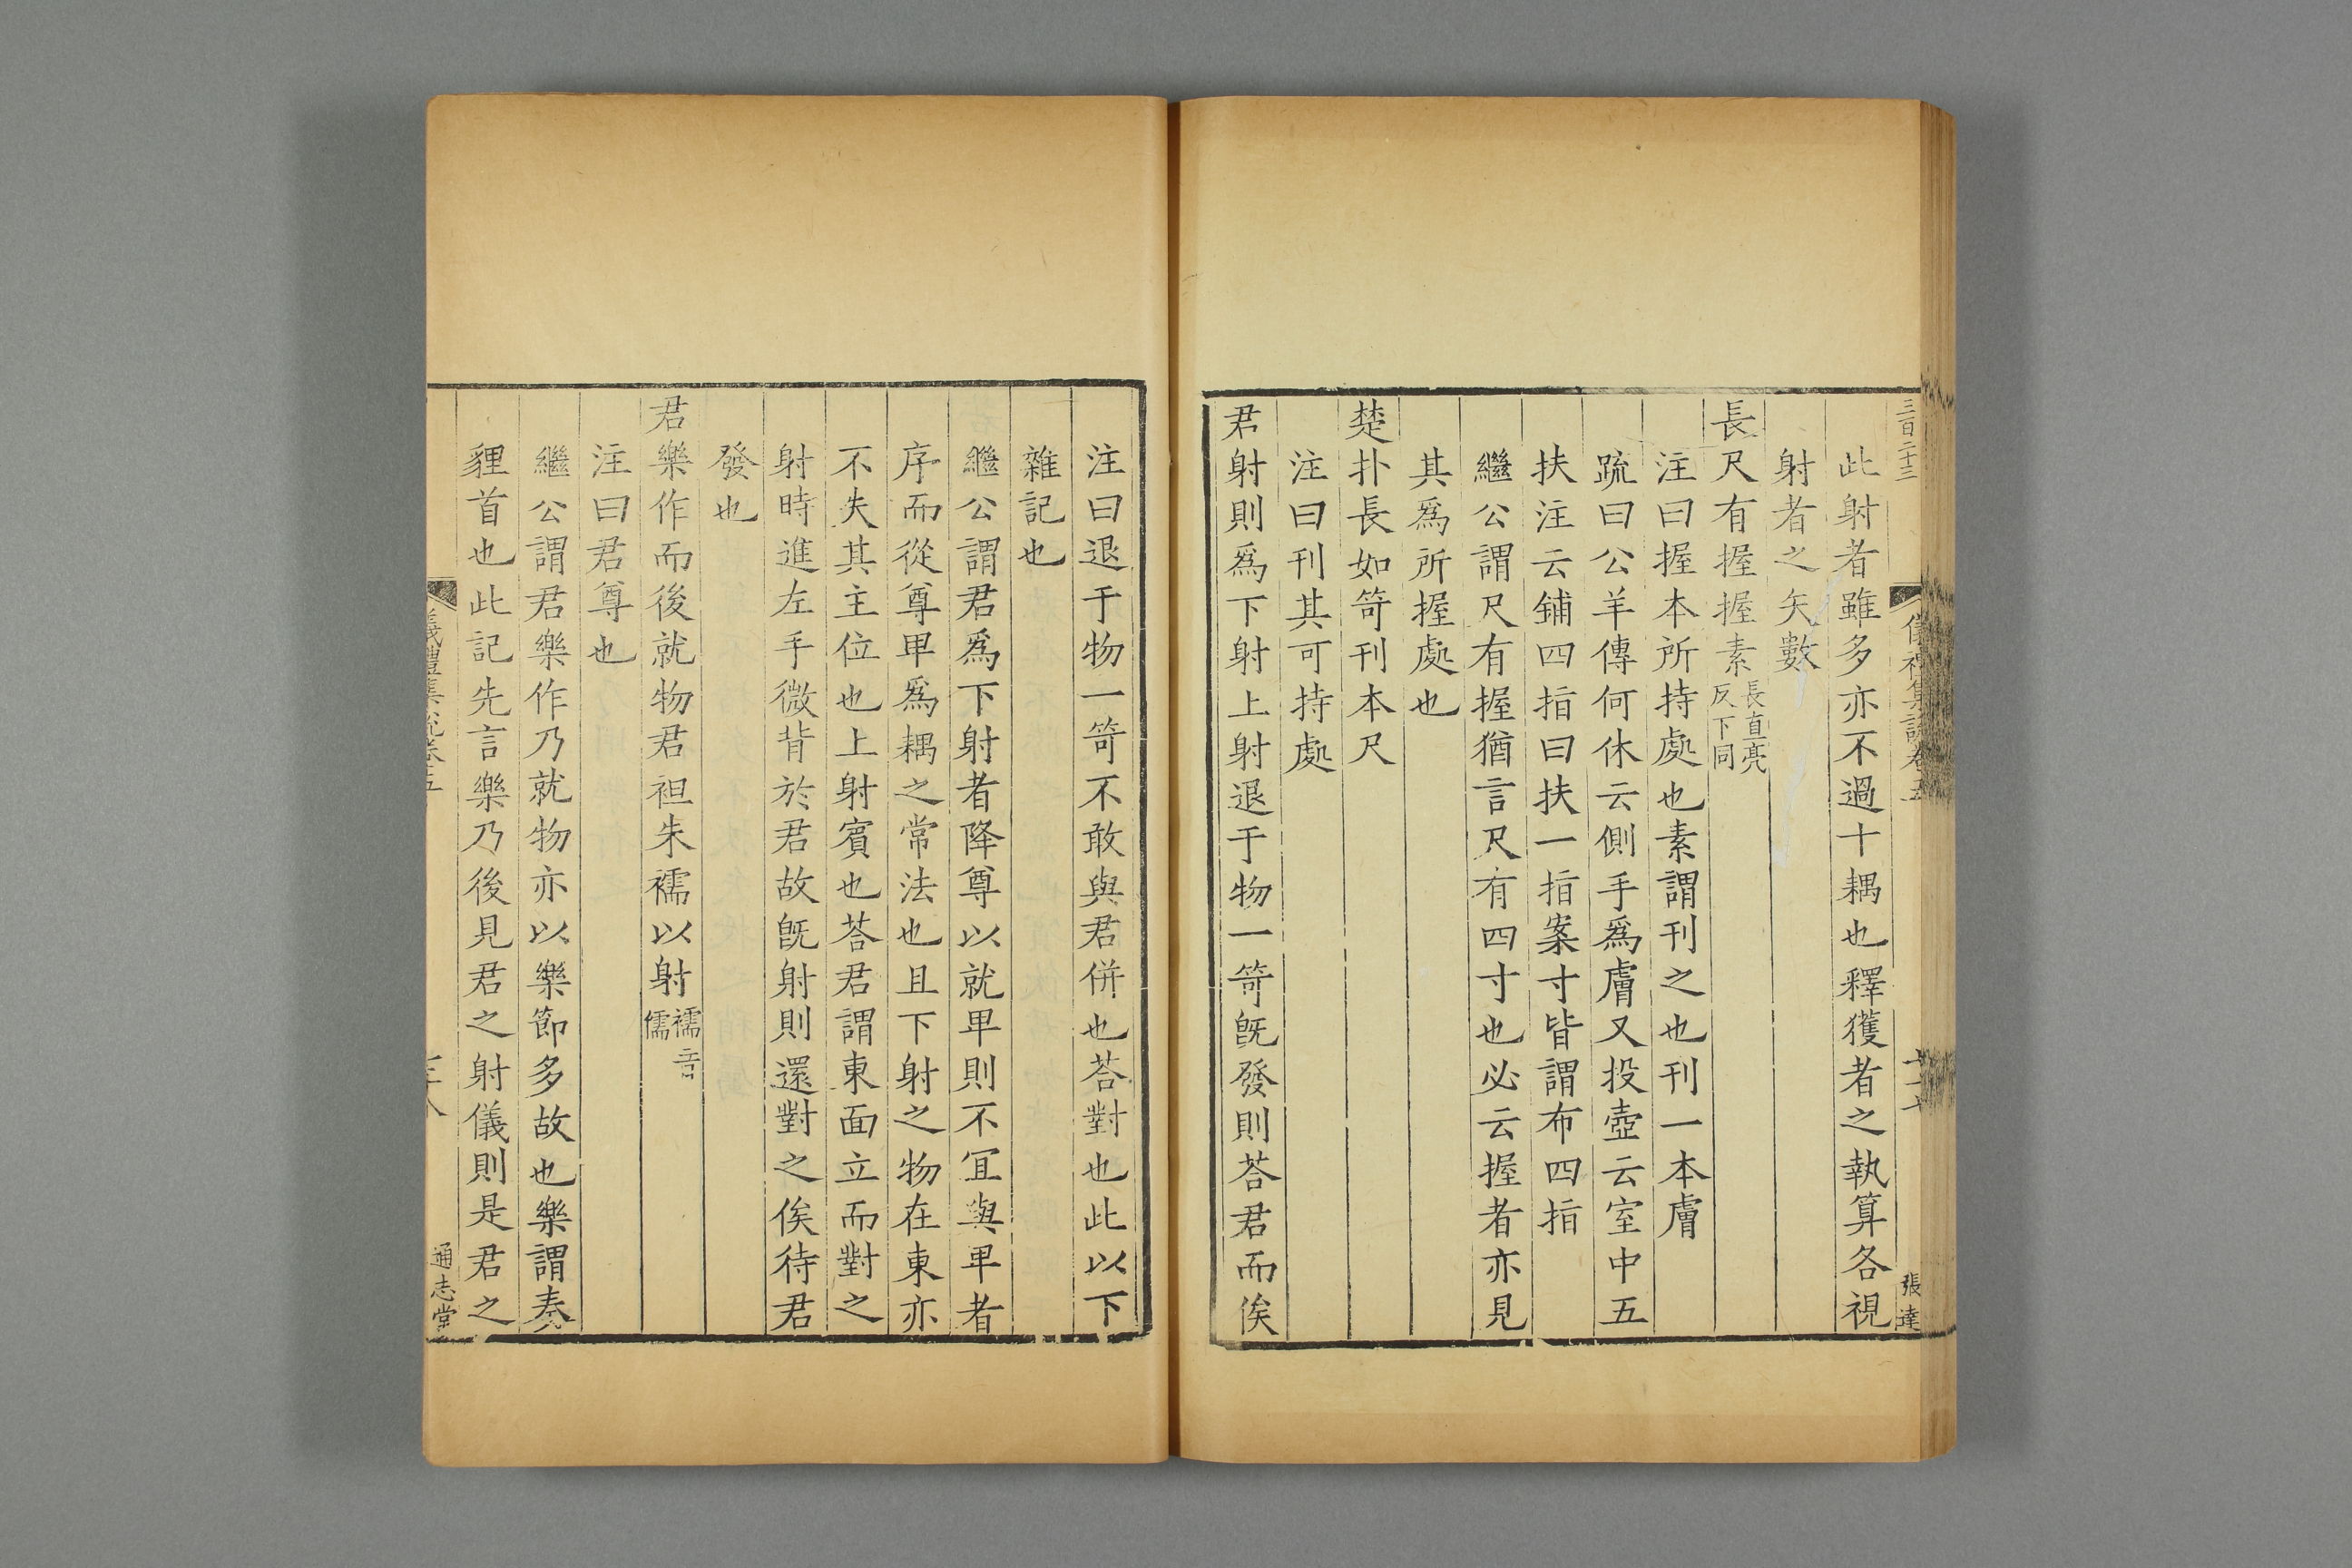 三百二十三
儀禮集說卷五
張達
此射者雖多亦不過十耦也釋獲者之執算各視
射者之矢數
長尺有握握素長直亮反下同
注曰握本所持處也素謂刊之也刊一本膚
䟽曰公羊傳何休云側手爲膚又投壺云室中五
扶注云鋪四指曰扶一指案寸皆謂布四指
繼公謂尺有握猶言尺有四寸也必云握者亦見
其爲所握處也
楚扑長如笴刊本尺
注曰刊其可持處
君射則爲下射上射退于物一笴旣發則荅君而俟
注曰退于物一笴不敢與君併也荅對也此以下
雜記也
繼公謂君爲下射者降尊以就卑則不冝與卑者
序而從尊卑爲耦之常法也且下射之物在東亦
不失其主位也上射賓也荅君謂東面立而對之
射時進左手微背於君故旣射則還對之俟待君
發也
君樂作而後就物君袒朱襦以射襦音儒
注曰君尊也
繼公謂君樂作乃就物亦以樂節多故也樂謂奏
貍首也此記先言樂乃後見君之射儀則是君之
儀禮集說卷五
通志堂